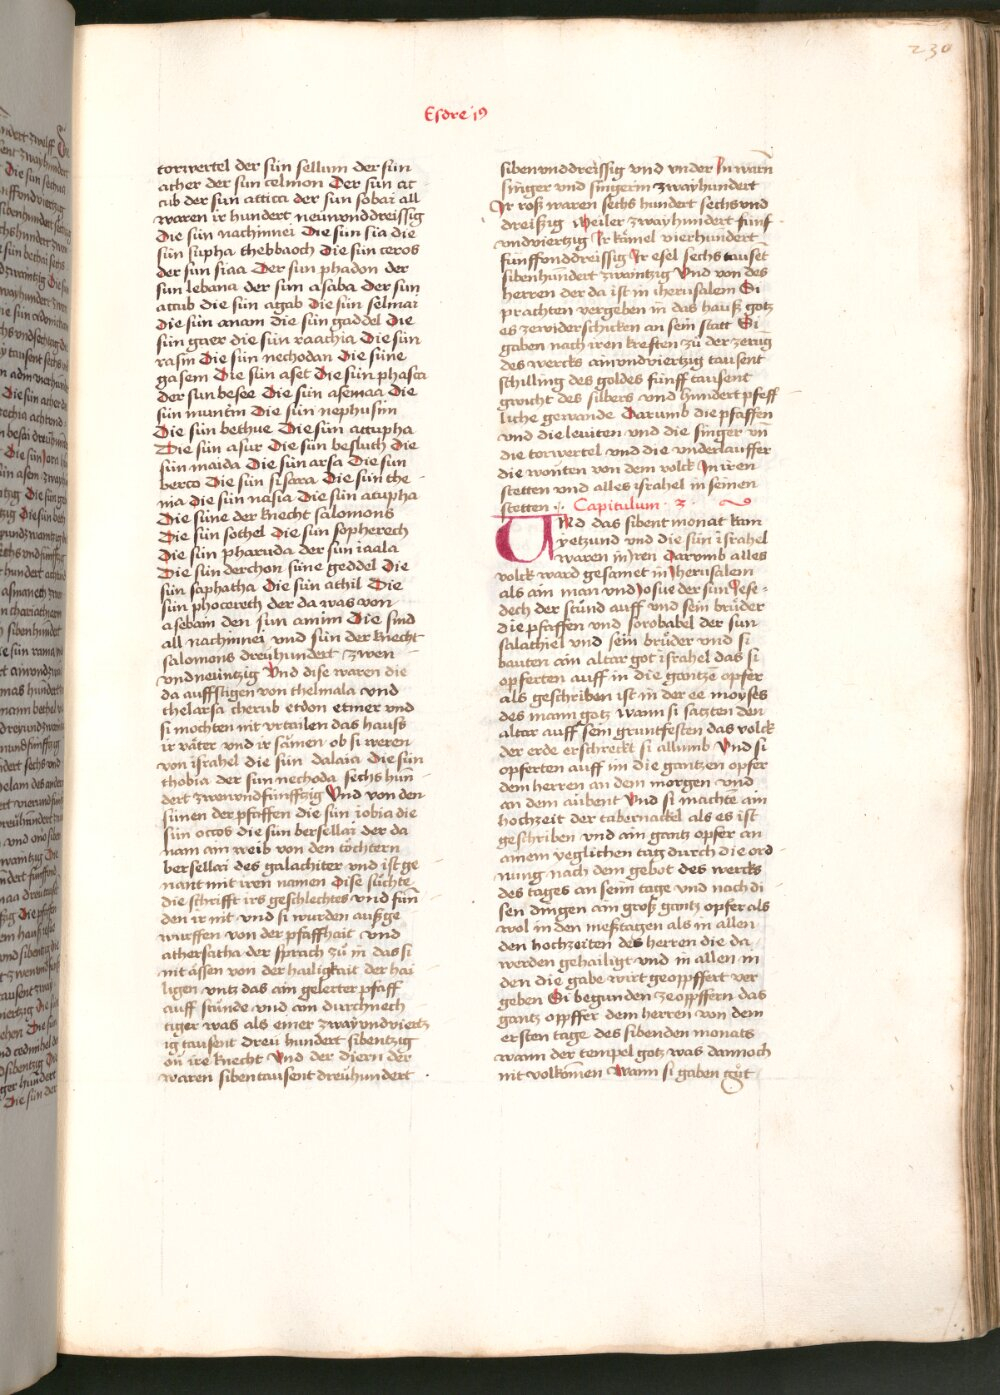 230
Esdre j9
torwertel der sün sellum der sün
ather der sun celmon Der sun at
cub der sun attica der sun sobai all
waren ir hundert neunvnddreissig
Die sün nachinnei Die sün sia die
sün supha thebbaoch Die sün ceros
der sun siaa Der sun phadon der
sun lebana der sün asaba der sun
attub die sün agab Die sün selmai
Die sün anam die sün gaddel Die
sün gaer die sün raachia Die sun
rasin Die sün nechodan Die süne
gasem Die sün aset Die sün phasea
der sun besee Die sün asemaa Die
sün muntm Die sün nephusim
Die sün bethue Die sün accupha
Die sün asur Die sün besluth Die
sün maida Die sün arsa Die sun
berco Die sün sisara Die sün the
ma die sün nasia Die sün atupha
Die süne der knecht salomons
Die sün sothel Die sün sopherech
Die sün pharuda der sun iaala
Die sün derchon süne geddel Die
sün saphatha Die sün athil Die
sün phocerech der da was von
asebam den sun amim Die sind
all nachinnei vnd sün der knecht
salomons dreühundert zwen
vndneüntzig Vnd dise waren die
da auffstigen von thelmala vnd
thelarsa cherub etdon etmer vnd
si mochten nit vrtailen das hauss
ir väter vnd ir sämen ob si weren
von israhel die sün dalaia die sün
thobia der sun nechoda sechs hun
dert zwenvndfünffzig Vnd von den
sünen der pfaffen die sün iobia die
sün occos die sun bersellai der da
nam am weib von den töchtern
bersellai des galachiter vnd ist ge
nant mit iren namen Dise süchte
die schrifft irs geschlechtes vnd fün
den ir nit vnd si wurden aussge
wurffen von der pfaffhait vnd
athersatha der sprach zů in das si
nit ässen von der hailigkait der hai
ligen vntz das ain gelerter pfaff
auff stünde vnd ain durchnech
tiger was als einer zwayvndviertz
ig tausent dreu hundert sibentzig
on ire knecht Vnd der diern der
waren sibentausent dreühundert
sibenvnddreissig vnd vnder In warn
singer vnd singerin zwayhundert
Ir roß waren sechs hundert sechsvnd
dreißig Meiler zwayhundert fünf
vndviertzig Ir kämel vierhundert
fünffvnddreissig Ir esel sechs tauset
sibenhundert zwaintzig Vnd von des
herren der da ist in iherusalem Si
prachten vergeben in das hauß gotz
es zewiderschicken an sein statt Si
gaben nach iren kreften zü der zerug
des wercks ainvndviertzig tausent
schilling des goldes fünff tausent
gwicht des silbers vnd hundert pfeff
liche gewande Darumb die pfaffen
vnd die leuiten vnd die singer vn̄
die torwertel vnd die vnderlauffer
die wonten von dem volck In iren
stetten vnd alles israhel in seinen
stetten ·:· Capitulum 3
Vnd das sibent monat kam
yetzund vnd die sün israhel
waren in iren Darumb alles
volck ward gesamet in Iherusalem
als ain man vnd Iosue der sun Iose-
dech der stünd auff vnd sein brüder
die pfaffen vnd sorobabel der sun
salathiel vnd sein brüder vnd si
bauten ain altar got israhel das si
opferten auff in die gantze opfer
als geschriben ist in der ee moyses
des mann gotz wann si satzten den
altar auff sein gruntfesten das volck
der erde erschreckt si allumb Vnd si
opferten auff im die gantzen opfer
dem herren an dem morgen vnd
an dem aubent Vnd si machte ain
hochzeit der tabernackel als es ist
geschriben vnd ain gantz opfer an
ainem yeglichen tag durch die ord
nung nach dem gebot des wercks
des tages an seim tage vnd nach di
sen dingen ain groß gantz opfer als
wol in den meßtagen als in allen
den hochzeiten des herren die da
werden gehailigt vnd in allen in
den die gabe wirt geopffert ver
geben Si begunden zeopffern das
gantz opffer dem herren von dem
ersten tage des sibenden monats
wann der tempel gotz was dannoch
nit volkōmen Wann si gaben gůt